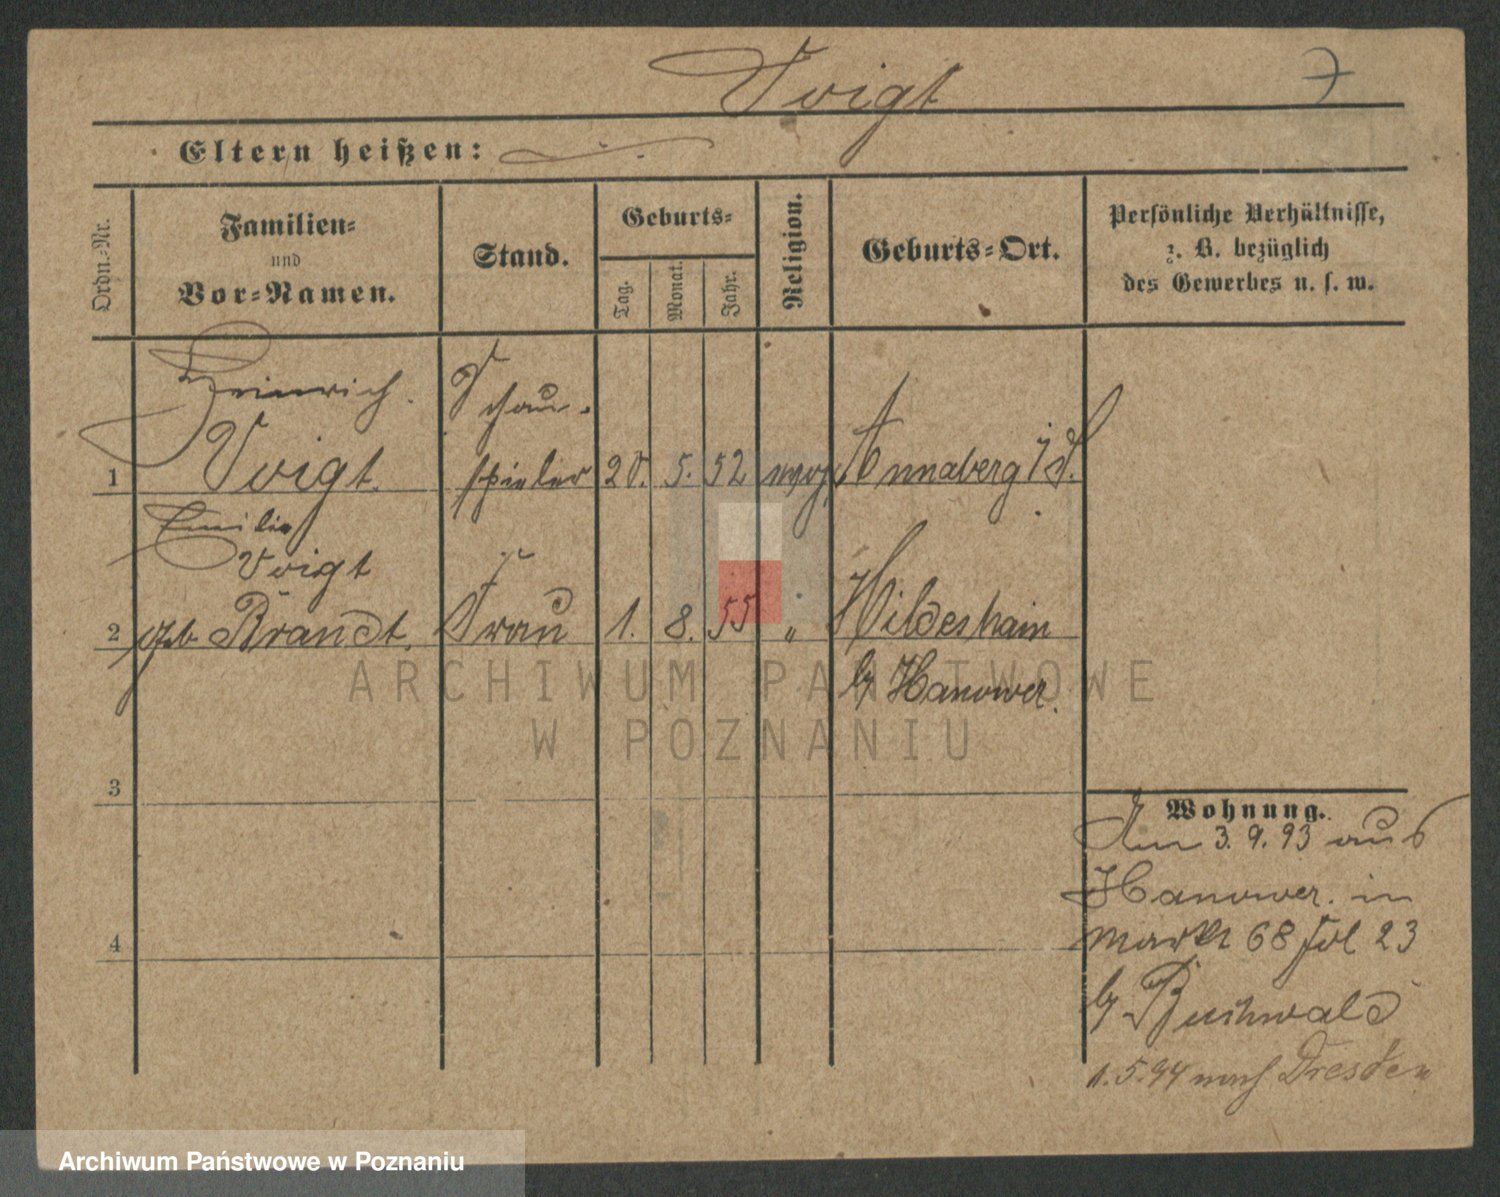 Voigt
7
Eltern heißen:
Ordn.-Nr.
Familien-
und
Vor-Namen.
Stand.
Geburts-
Tag.
Monat.
Jahr.
Religion.
Geburts-Ort.
Persönliche Verhältnisse,
z. B. bezüglich
des Gewerbes u. s. w.
Heinrich
Voigt
Schau-
spieler
1
5. 52
Annaberg
Emilie
Voigt
2 geb Brandt. Frau 1. 8. 55 " Hildesheim
b/ Hanower.
3
4
Wohnung.
Am 3. 9. 93 aus
Hanower. in
Markt 68 fol 23
b/ Buchwald
1. 5. 94 nach Dresden
ARCHIWUM PAŃSTWOWE
W POZNANIU
Archiwum Państwowe w Poznaniu